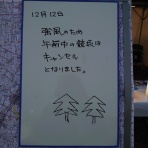 12月12日
強風のため
午前中の競技は
キャンセル
となりました。